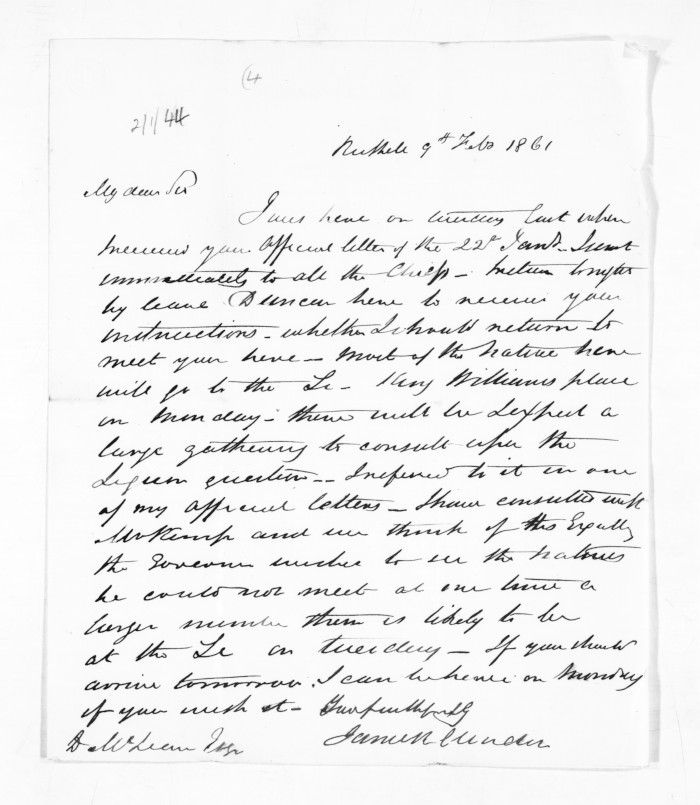 (4
2/1/44
Russell 9th Feby 1861
My dear Sir
I was here on tuesday last when
received your Official letter of the 22nd Jany. I sent
immediately to all the Chiefs - return to night
by leave Duncan here to receive your
instructions - whether I should return to
meet you here - Most of the Natives here
will go to the Ti - King Williams place
on Monday - there will be I expect a
large gathering to consult upon the
question - I referred to it in one
of my Official letters - I have consulted with
Mr Kemp and we think if His Excelly
the Governor wishes to see the Natives
he could not meet at one time a
larger number than is likely to be
at the Ti on tuesday - If you should
arrive tomorrow. I can be here on Monday
if you wish it - Yours faithfully
D McLean Esqr James R Clendon